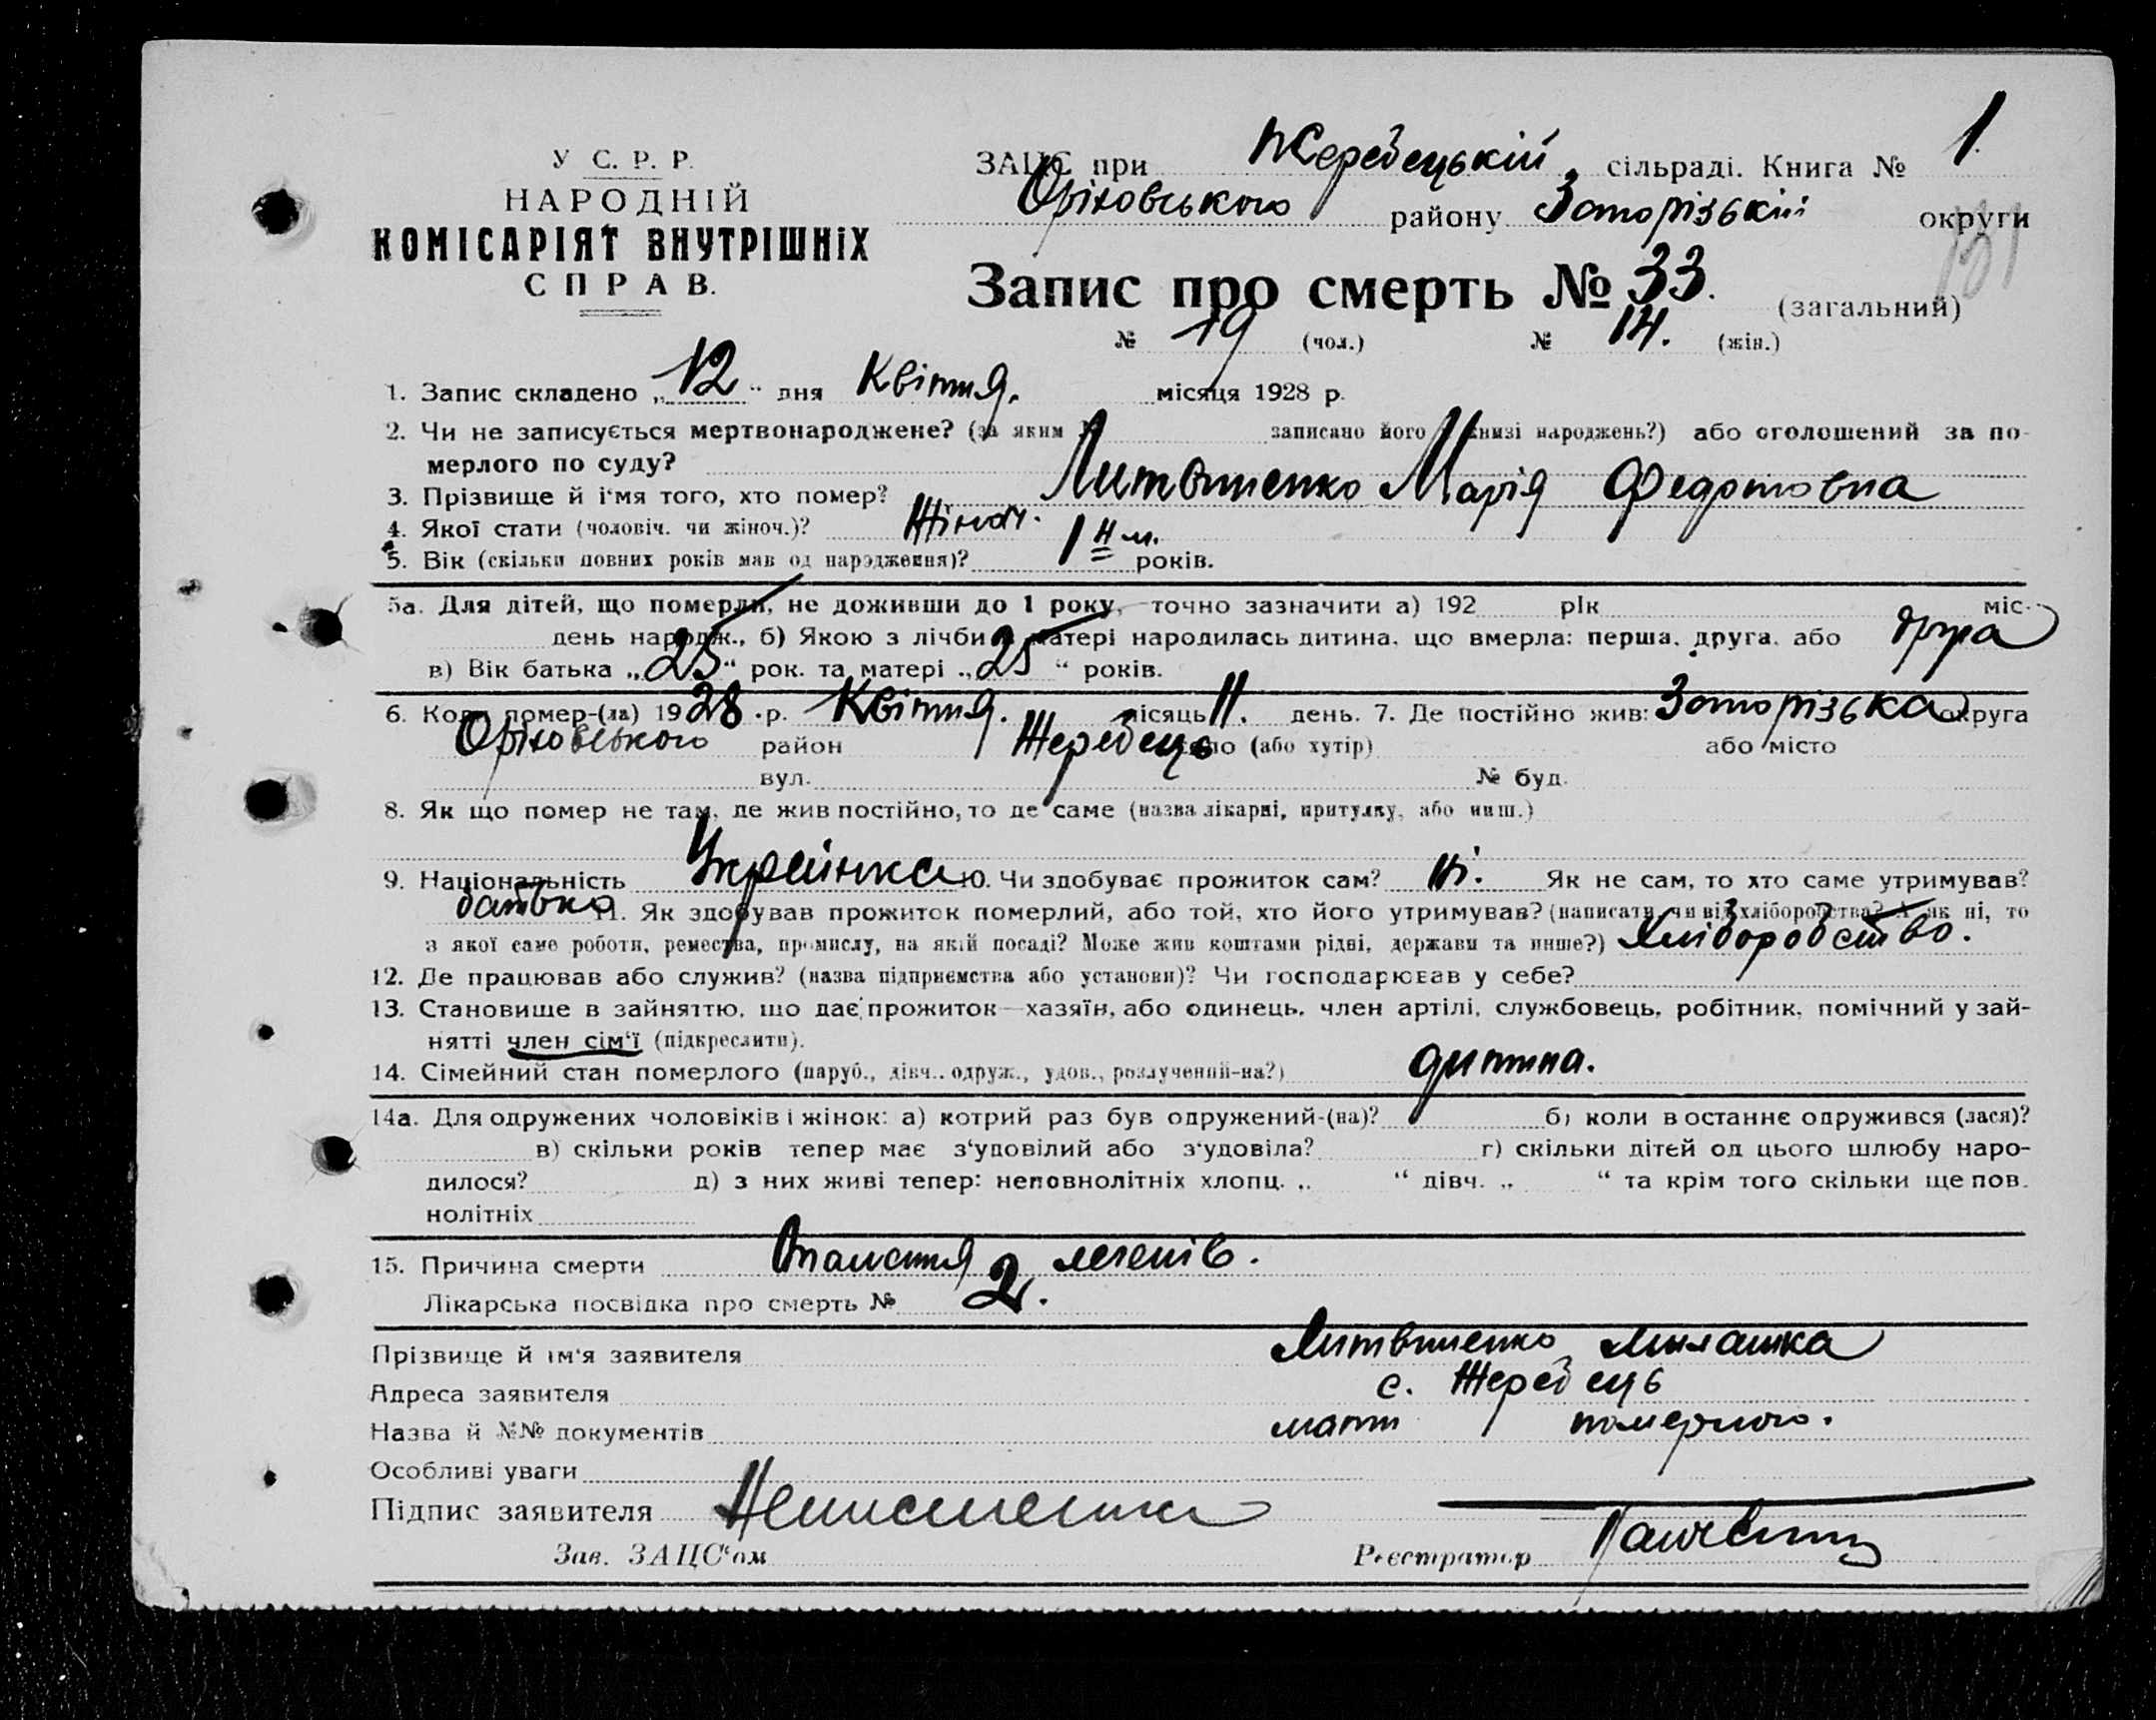 У С. Р. Р.
НАРОДНІЙ
КОМІСАРІЯТ ВНУТРІШНІХ
СПРАВ.
ЗАЦС при Жеребецькій сільраді. Книга № 1
Оріховського району Запорізькій округи
131
Запис про смерть № 33. (загальний)
№ 19 (чол.) № 14. (жін.)
1. Запис складено „12“ дня Квітня. місяця 1928 р.
2. Чи не записується мертвонароджене? (за яким № записано його в книзі народжень?) або оголошений за по-
мерлого по суду?
3. Прізвище й і'мя того, хто помер? Литвиненко Марія Федотовна
4. Якої стати (чоловіч. чи жіноч.)? Жіноч.
5. Вік (скільки повних років мав од народження)? 1 років.
5а. Для дітей, що померли, не доживши до 1 року, точно зазначити а) 192 рік міс.
день народж., б) Якою з лічби у матері народилась дитина, що вмерла: перша, друга, або друга
в) Вік батька „25“ рок. та матері „25“ років.
6. Коли помер-(ла) 1928 р. Квітня. місяць 11. день. 7. Де постійно жив: Запорізька округа
Оріховського район Жеребець село (або хутір) або місто
вул. № буд.
8. Як що помер не там, де жив постійно, то де саме (назва лікарні, притулку, або инш.)
9. Національність Українка 10. Чи здобуває прожиток сам? ні. Як не сам, то хто саме утримував?
батько 11. Як здобував прожиток померлий, або той, хто його утримував? (написати, чи від хліборобства? А як ні, то
з якої саме роботи, ремества, промислу, на якій посаді? Може жив коштами рідні, держави та инше?) Хліборобство.
12. Де працював або служив? (назва підприємства або установи)? Чи господарював у себе?
13. Становище в зайняттю, що дає прожиток—хазяїн, або одинець, член артілі, службовець, робітник, помічний у зай-
нятті член сім'ї (підкреслити).
14. Сімейний стан померлого (паруб., дівч.. одруж., удов., розлучений-на?) дитина.
14а. Для одружених чоловіків і жінок: а) котрий раз був одружений-(на)? б) коли в останнє одружився (лася)?
в) скільки років тепер має з'удовілий або з'удовіла? г) скільки дітей од цього шлюбу наро-
дилося? д) з них живі тепер: неповнолітніх хлопц. „ “ дівч. „ “ та крім того скільки ще пов.
нолітніх
15. Причина смерти Опалення легенів.
Лікарська посвідка про смерть № 2.
Прізвище й ім'я заявителя Литвиненко Милашка
Адреса заявителя с. Жеребець
Назва й №№ документів мати померлого.
Особливі уваги
Підпис заявителя
Зав. ЗАЦС'ом Реєстратор